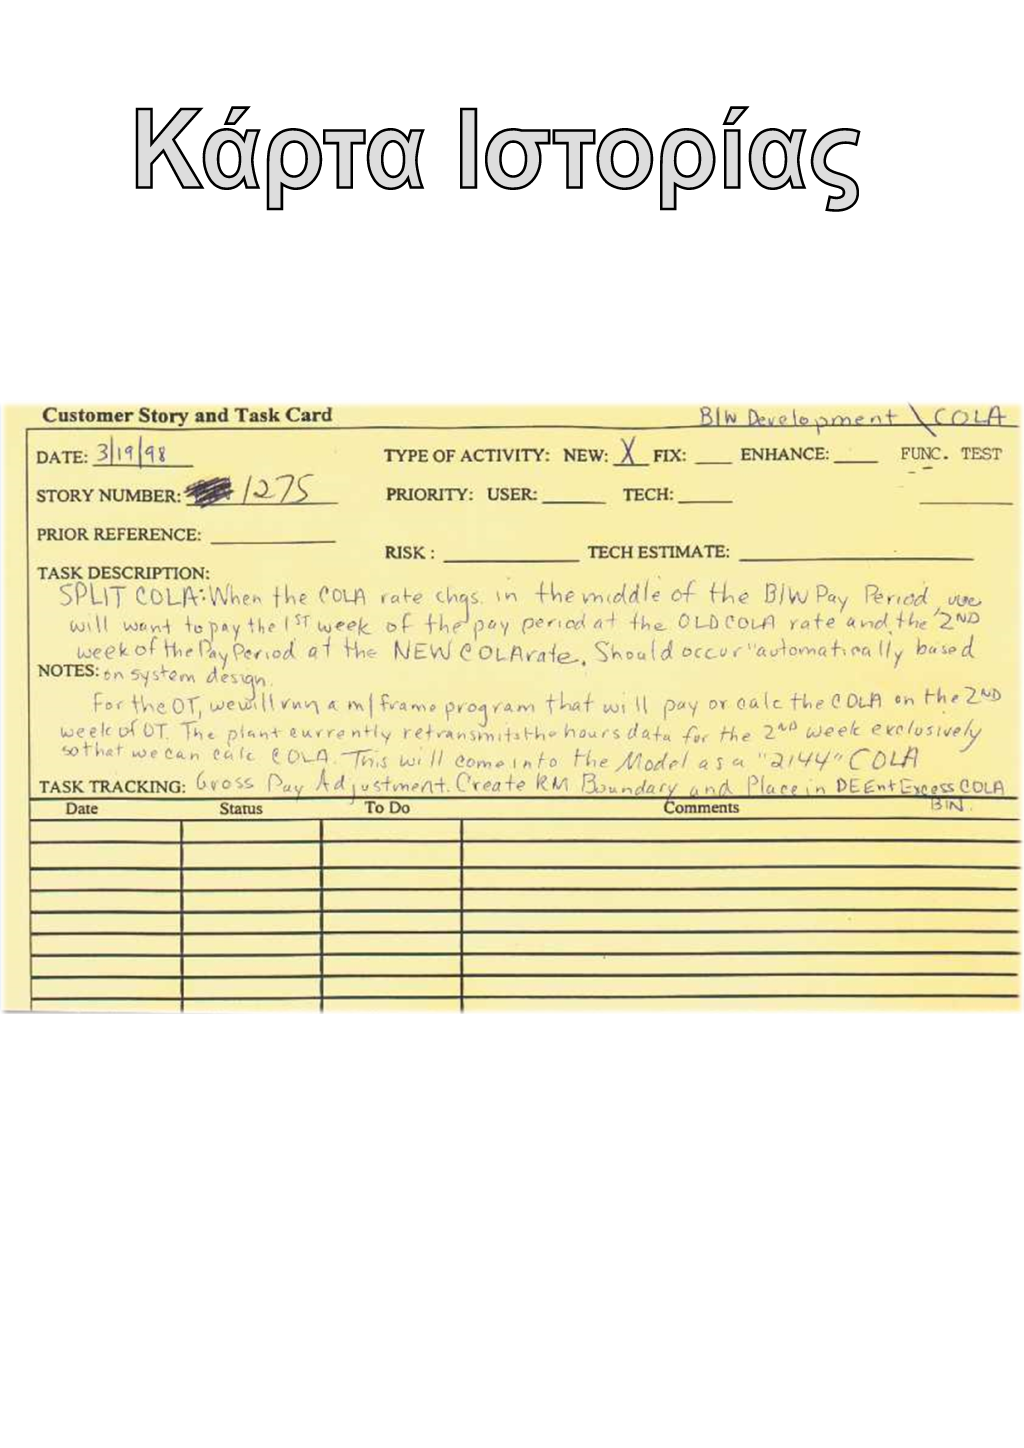 Κάρτα Ιστορίας
Customer Story and Task Card B/W Development \ COLA
DATE: 3/19/98 TYPE OF ACTIVITY: NEW: X FIX: ____ ENHANCE: ____ FUNC. TEST
STORY NUMBER: 1275 PRIORITY: USER: ____ TECH: ____
PRIOR REFERENCE: ____
RISK : ____ TECH ESTIMATE: ____
TASK DESCRIPTION:
SPLIT COLA: When the COLA rate chgs. in the middle of the B/W Pay Period, we
will want to pay the 1ST week of the pay period at the OLD COLA rate and the 2ND
week of the Pay Period at the NEW COLA rate. Should occur "automatically based
NOTES: on system design.
For the OT, we will run a m/frame program that will pay or calc the COLA on the 2ND
week of OT. The plant currently retransmits the hours data for the 2ND week exclusively
so that we can calc COLA. This will come into the Model as a "2144" COLA
TASK TRACKING: Gross Pay Adjustment. Create RM Boundary and Place in DEEnt Excess COLA
BIN.
Date Status To Do Comments